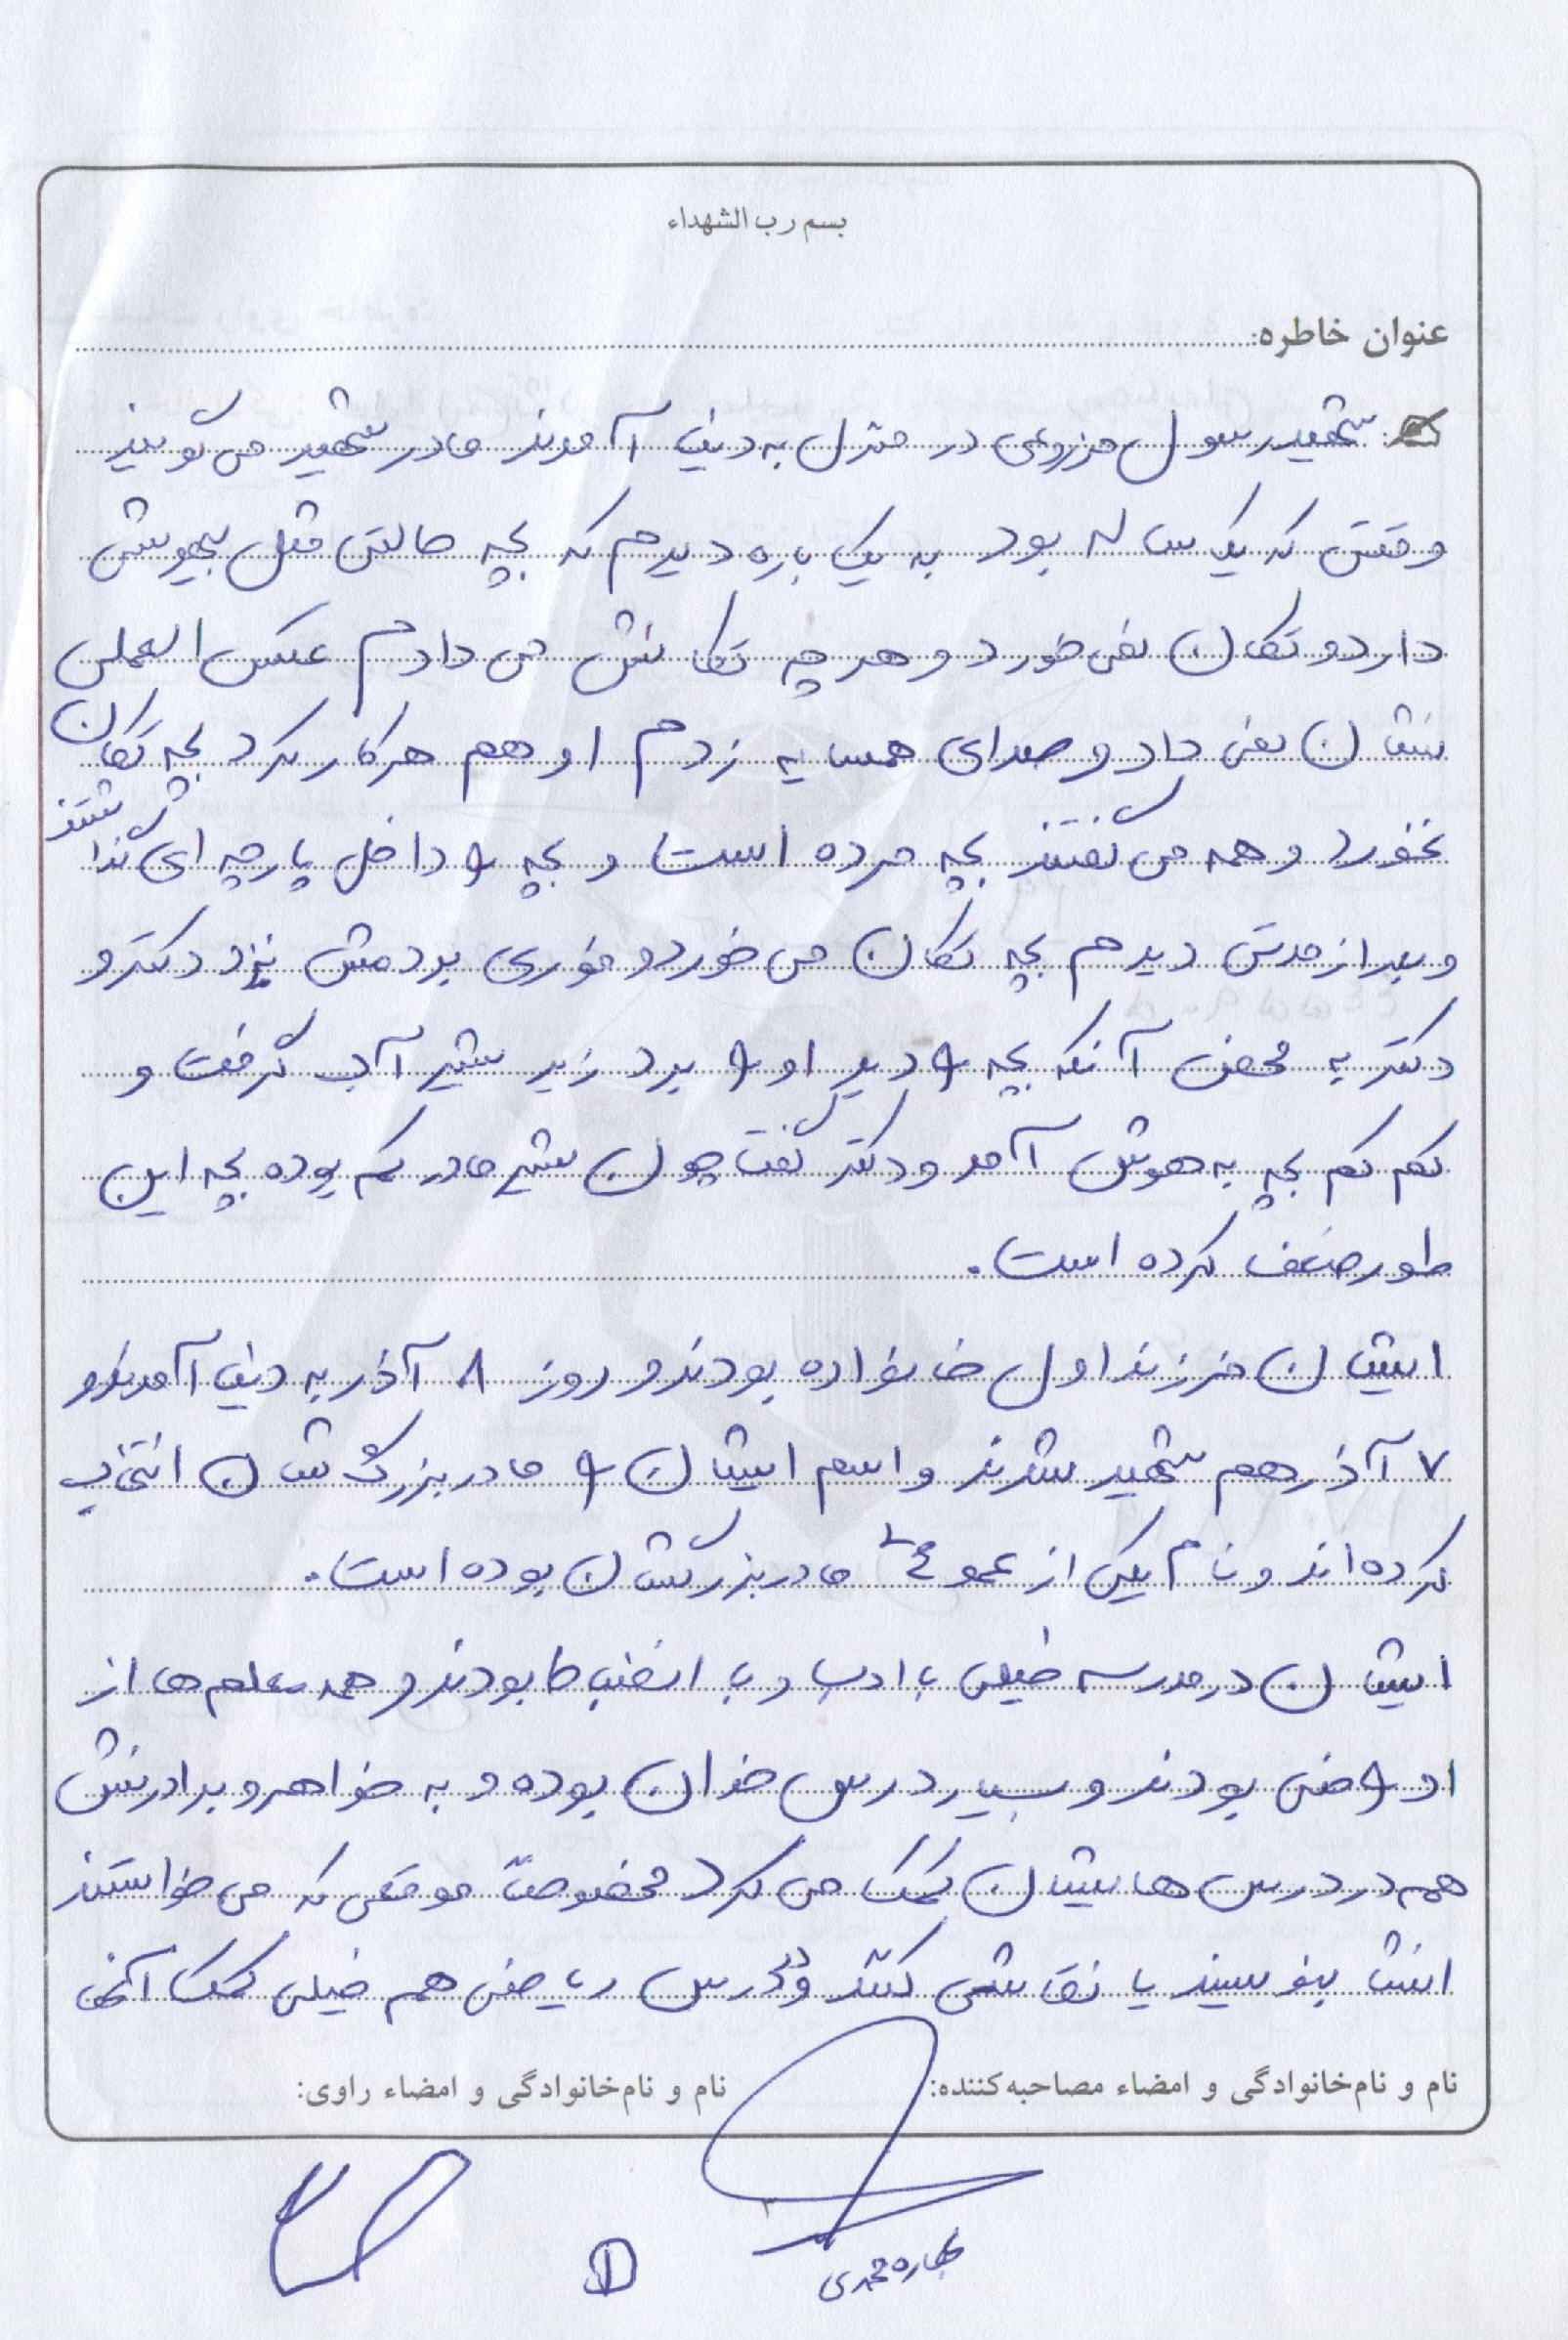 بسم رب الشهداء
عنوان خاطره:
شهید رسول مزروعی در منزل به دنیا آمدند مادر شهید می گویند
وقتی که یک ساله بود به یک باره دیدم که بچه حالتی مثل بیهوشی
دارد و تکان نمی خورد و هر چه تکانش می دادم عکس العملی
نشان نمی داد و صدای همسایه زدم او هم هر کار کرد بچه تکان
نخورد و همه می گفتند بچه مرده است و بچه را داخل پارچه ای گذاشتند
و بعد از مدتی دیدم بچه تکان می خورد و فوری بردمش نزد دکتر و
دکتر به محض آنکه بچه را دید او را برد زیر شیر آب گرفت و
کم کم بچه به هوش آمد و دکتر گفت چون شیر مادر کم بوده بچه این
طور ضعف کرده است.
ایشان فرزند اول خانواده بودند و روز ۸ آذر به دنیا آمدند و
۷ آذر هم شهید شدند و اسم ایشان را مادربزرگ شان انتخاب
کرده اند و نام یکی از عموهای مادربزرگشان بوده است.
ایشان در مدرسه خیلی با ادب و با انضباط بودند و همه معلم ها از
او راضی بودند و بسیار درس خوان بوده و به خواهر و برادرانش
هم در درس هایشان کمک می کرد مخصوصاً موقعی که می خواستند
انشا بنویسند یا نقاشی کنند و در درس ریاضی هم خیلی کمک آنها
نام و نام‌خانوادگی و امضاء مصاحبه‌کننده:
نام و نام‌خانوادگی و امضاء راوی:
۳
بهاره محمدی
①